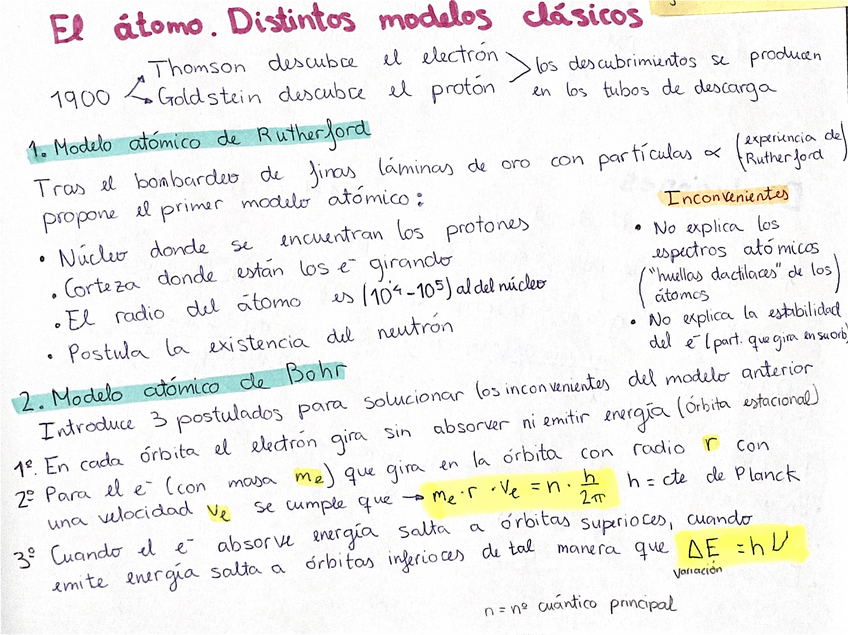 El átomo. Distintos modelos clásicos
1900
Thomson descubre el electrón
Goldstein descubre el protón
los descubrimientos se producen
en los tubos de descarga
1. Modelo atómico de Rutherford
Tras el bombardeo de finas láminas de oro con partículas α (experiencia de Rutherford)
propone el primer modelo atómico:
• Núcleo donde se encuentran los protones
• Corteza donde están los e⁻ girando
• El radio del átomo es (10⁴-10⁵) al del núcleo
• Postula la existencia del neutrón
Inconvenientes
• No explica los
espectros atómicos
("huellas dactilares" de los
átomos)
• No explica la estabilidad
del e⁻ (part. que gira en su orb)
2. Modelo atómico de Bohr
Introduce 3 postulados para solucionar los inconvenientes del modelo anterior
1º. En cada órbita el electrón gira sin absorver ni emitir energía (Órbita estacional)
2º Para el e⁻ (con masa me) que gira en la órbita con radio r con
una velocidad ve se cumple que → me · r · ve = n · h/2π h = cte de Planck
3º Cuando el e⁻ absorve energía salta a órbitas superiores, cuando
emite energía salta a órbitas inferiores de tal manera que ΔE = hν
variación
n = nº cuántico principal